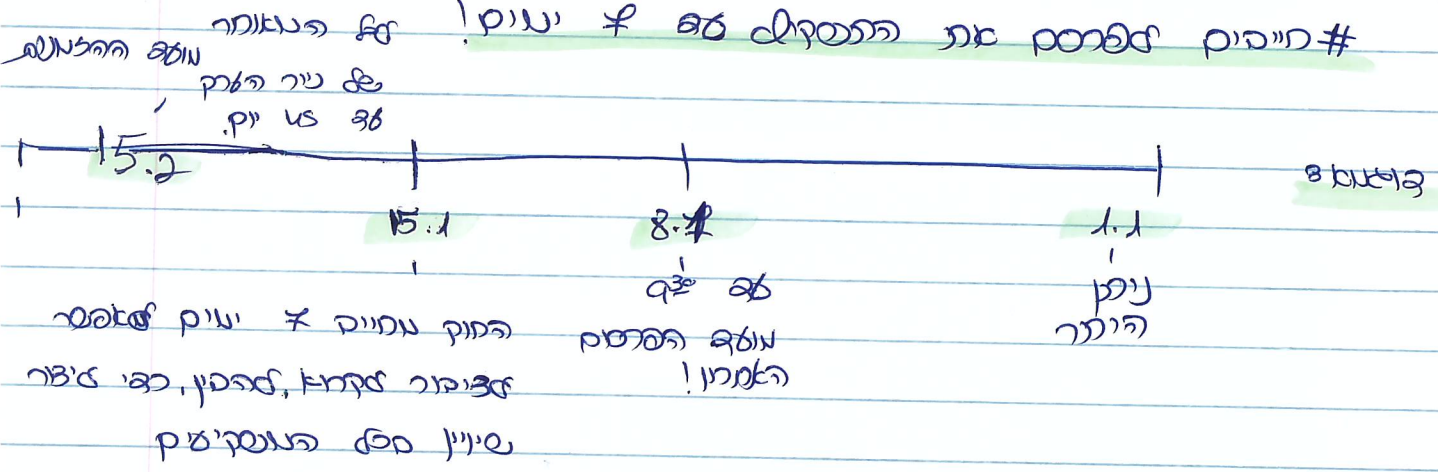 #חייבים לפרסם את התשקיף עד 7 ימים!
לכל המאוחר
מועד ההזמנות
של נייר הערך
עד 45 יום.
דוגמא
15.2
15.1
8.1
1.1
ניתן
היתר
עד
מועד הפרסום
האחרון!
החוק מחייב 7 ימים לאפשר
לציבור לקרוא, להבין, כדי ליצור
שוויון בכל המשקיעים